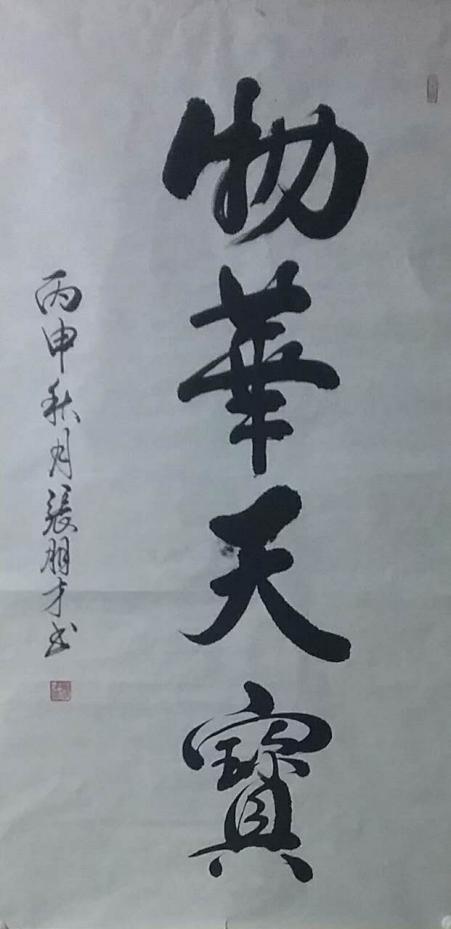 物華天寶
丙申秋月張朋才书